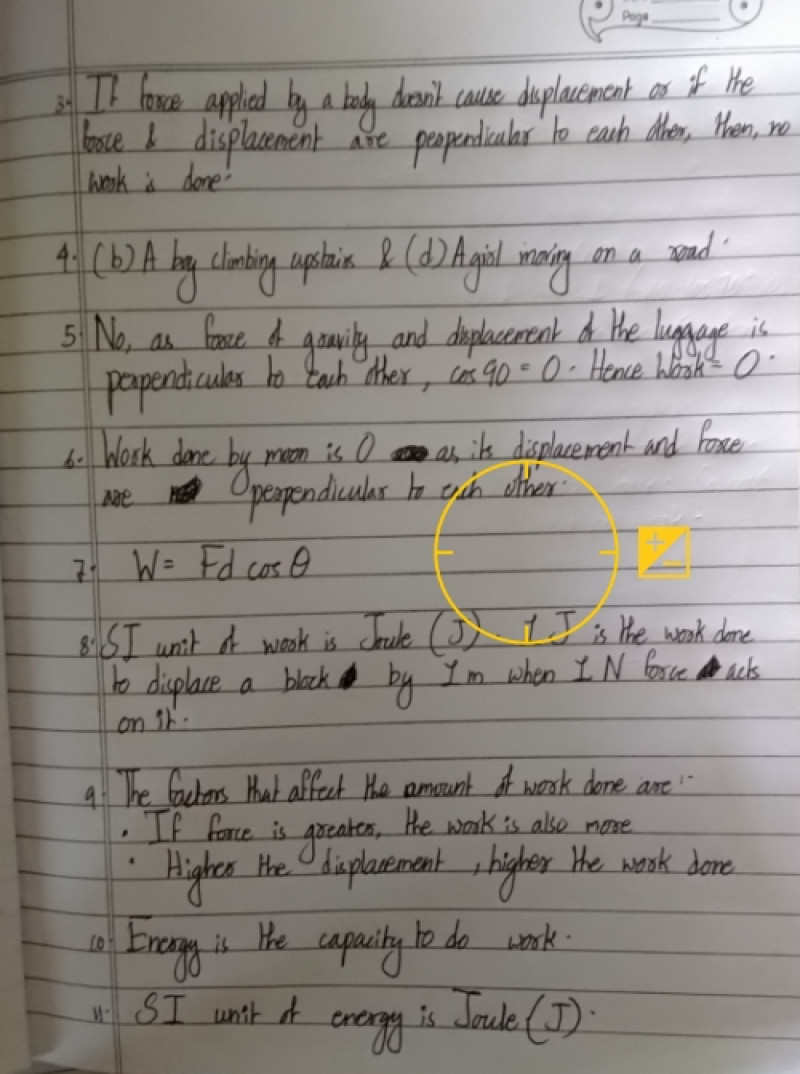 Page
3. If force applied by a body doesn't cause displacement or if the
force & displacement are perpendicular to each other, then, no
work is done.
4. (b) A boy climbing upstairs & (d) A girl moving on a road.
5. No, as force of gravity and displacement of the luggage is
perpendicular to each other, cos 90 = 0. Hence Work = 0.
6. Work done by moon is 0 as its displacement and force
are perpendicular to each other.
7. W = Fd cos θ
8. SI unit of work is Joule (J). 1 J is the work done
to displace a block by 1 m when 1 N force acts
on it.
9. The factors that affect the amount of work done are :-
• If force is greater, the work is also more
• Higher the displacement, higher the work done
10. Energy is the capacity to do work.
11. SI unit of energy is Joule (J).